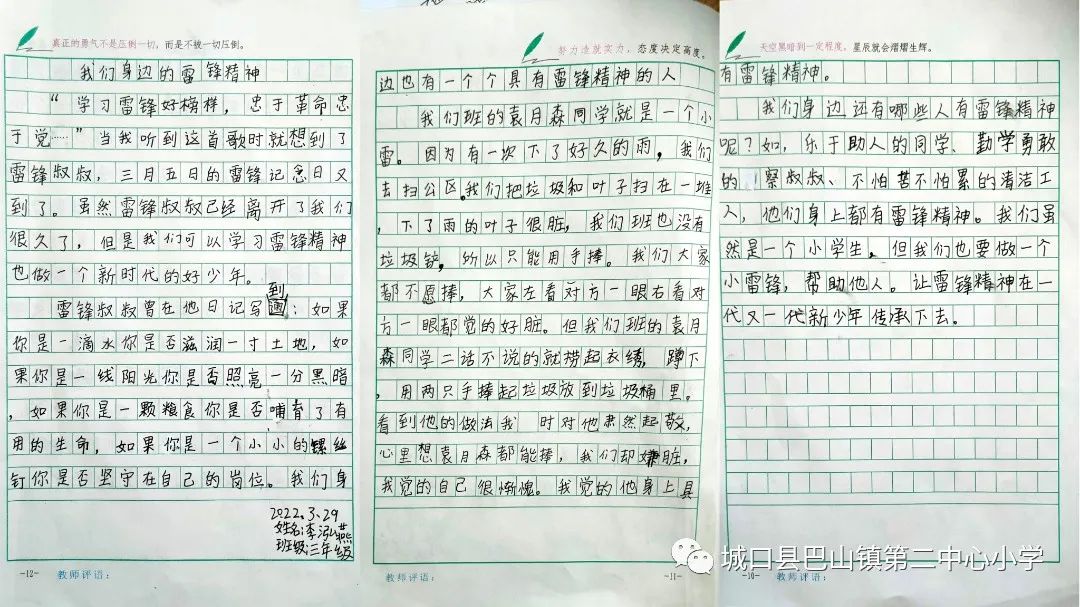 真正的勇气不是压倒一切，而是不被一切压倒。
我们身边的雷锋精神
“学习雷锋好榜样，忠于革命忠
于党……”当我听到这首歌时就想到了
雷锋叔叔，三月五日的雷锋记念日又
到了。虽然雷锋叔叔已经离开了我们
很久了，但是我们可以学习雷锋精神
也做一个新时代的好少年。
到
雷锋叔叔曾在他日记写圆：如果
你是一滴水你是否滋润一寸土地，如
果你是一线阳光你是否照亮一分黑暗
，如果你是一颗粮食你是否哺育了有
用的生命，如果你是一个小小的螺丝
钉你是否坚守在自己的岗位。我们身
2022.3.29
姓名:李泓燕
班级:三年级
-12- 教师评语：
努力造就实力，态度决定高度。
边也有一个个具有雷锋精神的人
我们班的袁月森同学就是一个小
雷。因为有一次下了好久的雨，我们
去扫公区。我们把垃圾和叶子扫在一堆
，下了雨的叶子很脏，我们班也没有
垃圾铲，所以只能用手捧。我们大家
都不愿捧，大家左看对方一眼右看对
方一眼都觉的好脏。但我们班的袁月
森同学二话不说的就捞起衣绣，蹲下
，用两只手捧起垃圾放到垃圾桶里。
看到他的做法我 时对他肃然起敬，
心里想袁月森都能捧，我们却嫌脏，
我觉的自己很惭愧。我觉的他身上具
教师评语： -11-
天空黑暗到一定程度，星辰就会熠熠生辉。
有雷锋精神。
我们身边还有哪些人有雷锋精神
呢？如，乐于助人的同学、勤学勇敢
的 察叔叔、不怕苦不怕累的清洁工
人，他们身上都有雷锋精神。我们虽
然是一个小学生，但我们也要做一个
小雷锋，帮助他人。让雷锋精神在一
代又一代新少年传承下去。
-10- 教师评语：
城口县巴山镇第二中心小学